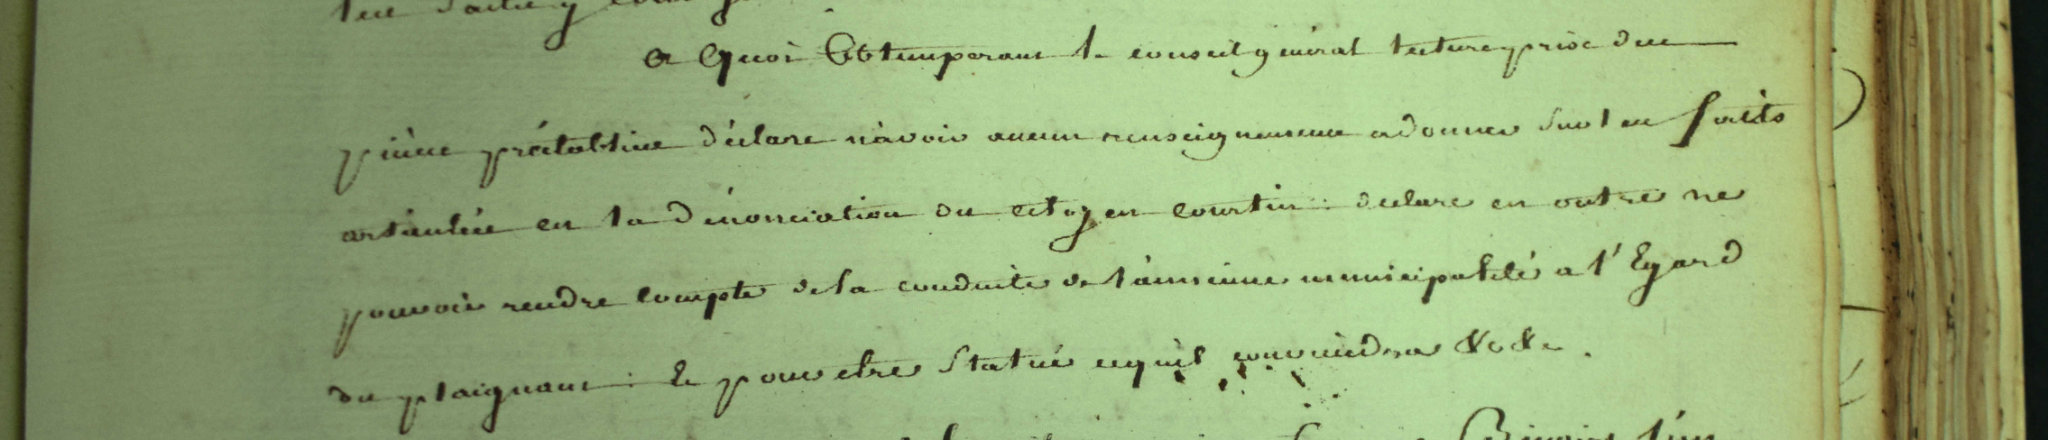 a Quoi Obtemperant le conseil general lecture prise des
pièces préétablies déclare n'avoir aucun renseignement a donner sur les faits
articulés en la dénonciation du citoyen Courtin : declare en outre ne
pouvoir rendre compte de la conduite de l'ancienne municipalité a l'Egard
du plaignant : Et pour etre Statué ce qu'il conviendra &c &c.